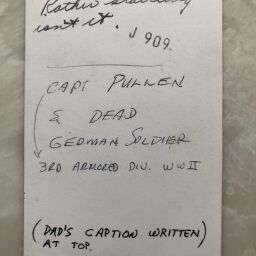 Rather
isn't it.
J 909.
CAPT PULLEN
& DEAD
GERMAN SOLDIER
3RD ARMORED DIV. WWII
(DAD'S CAPTION WRITTEN)
AT TOP.